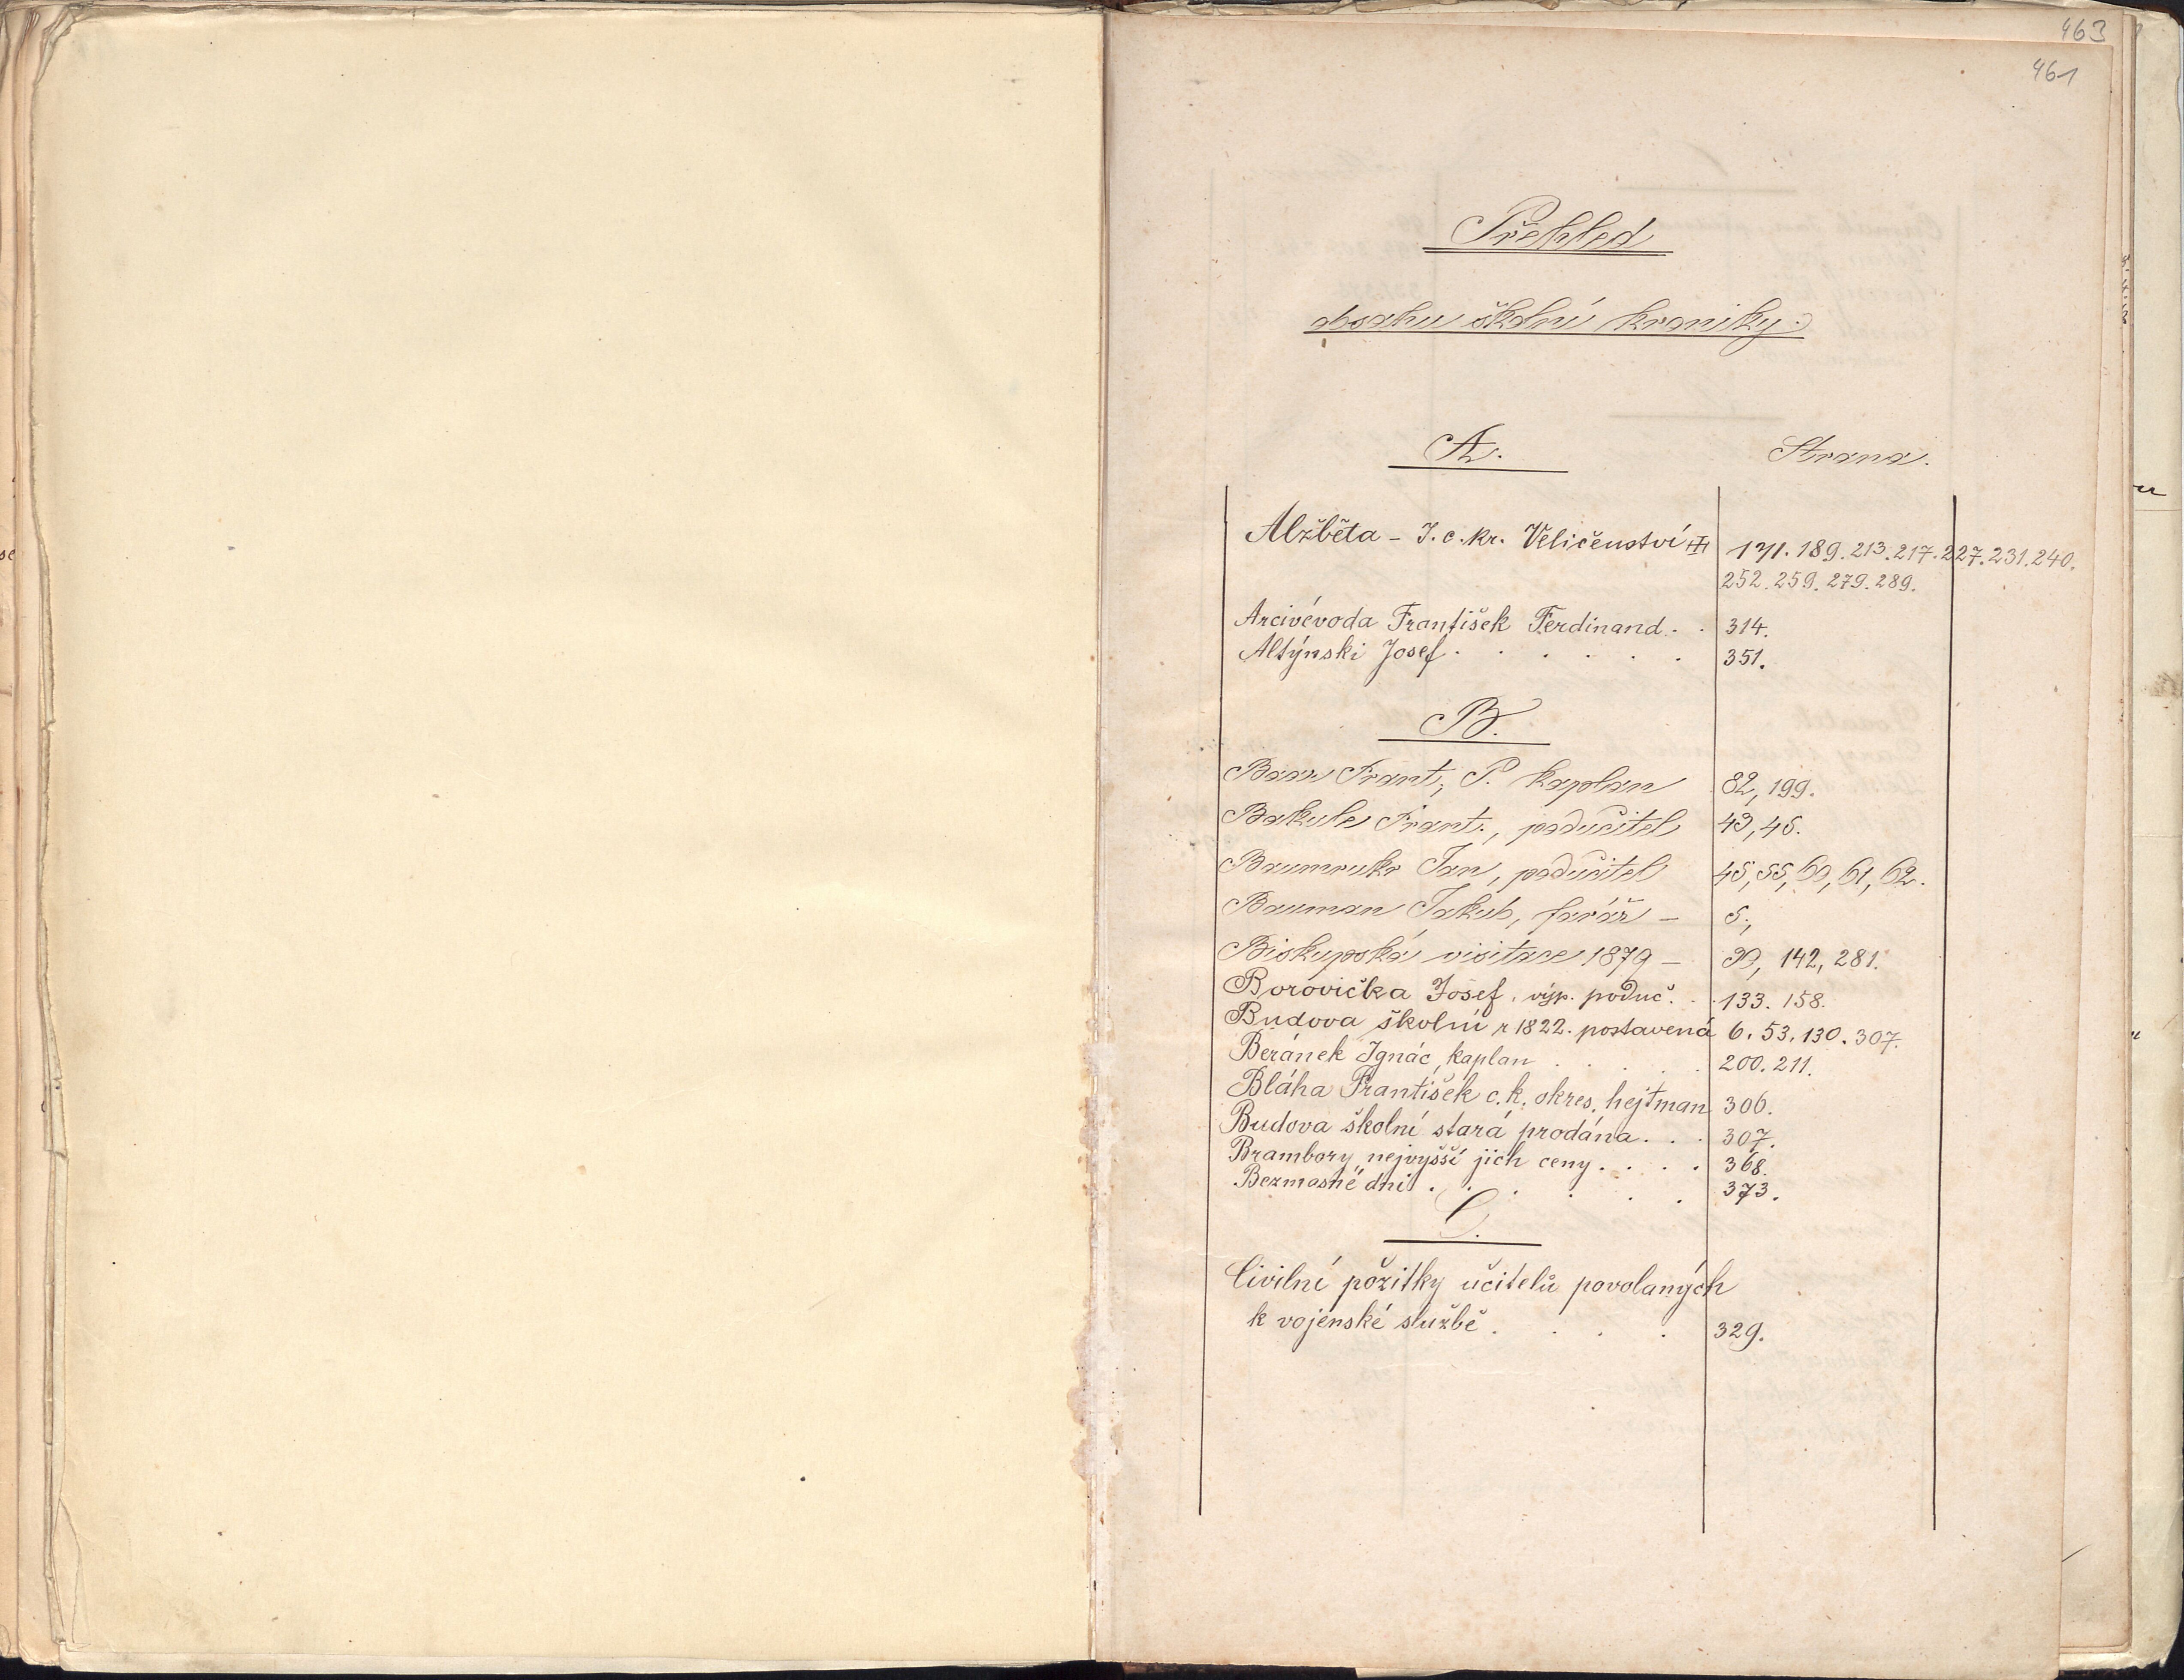 463
461
Přehled
obsahu školní kroniky.
A. Strana.
Alžběta - J. c. kr. Veličenství 171. 189. 213. 217. 227. 231. 240.
252. 259. 279. 289.
Arcivévoda František Ferdinand . . 314.
Altýnski Josef . . . . . . 351.
B.
Baar Frant., P. kaplan 82, 199.
Bakule Frant., podučitel 43, 45.
Baumrukr Jan, podučitel 45, 55, 60, 61, 62.
Bauman Jakub, farář - 5,
Biskupská visitace 1879 - 30, 142, 281.
Borovička Josef, výp. poduč. . . 133. 158.
Budova školní r 1822. postavená 6. 53. 130. 307.
Beránek Ignác, kaplan . . . . . 200. 211.
Bláha František c. k. okres. hejtman 306.
Budova školní stará prodána . . . 307.
Brambory, nejvyšší jich ceny . . . . 368.
Bezmasné dni . . . . . . 373.
C.
Civilní požitky učitelů povolaných
k vojenské službě . . . . 329.